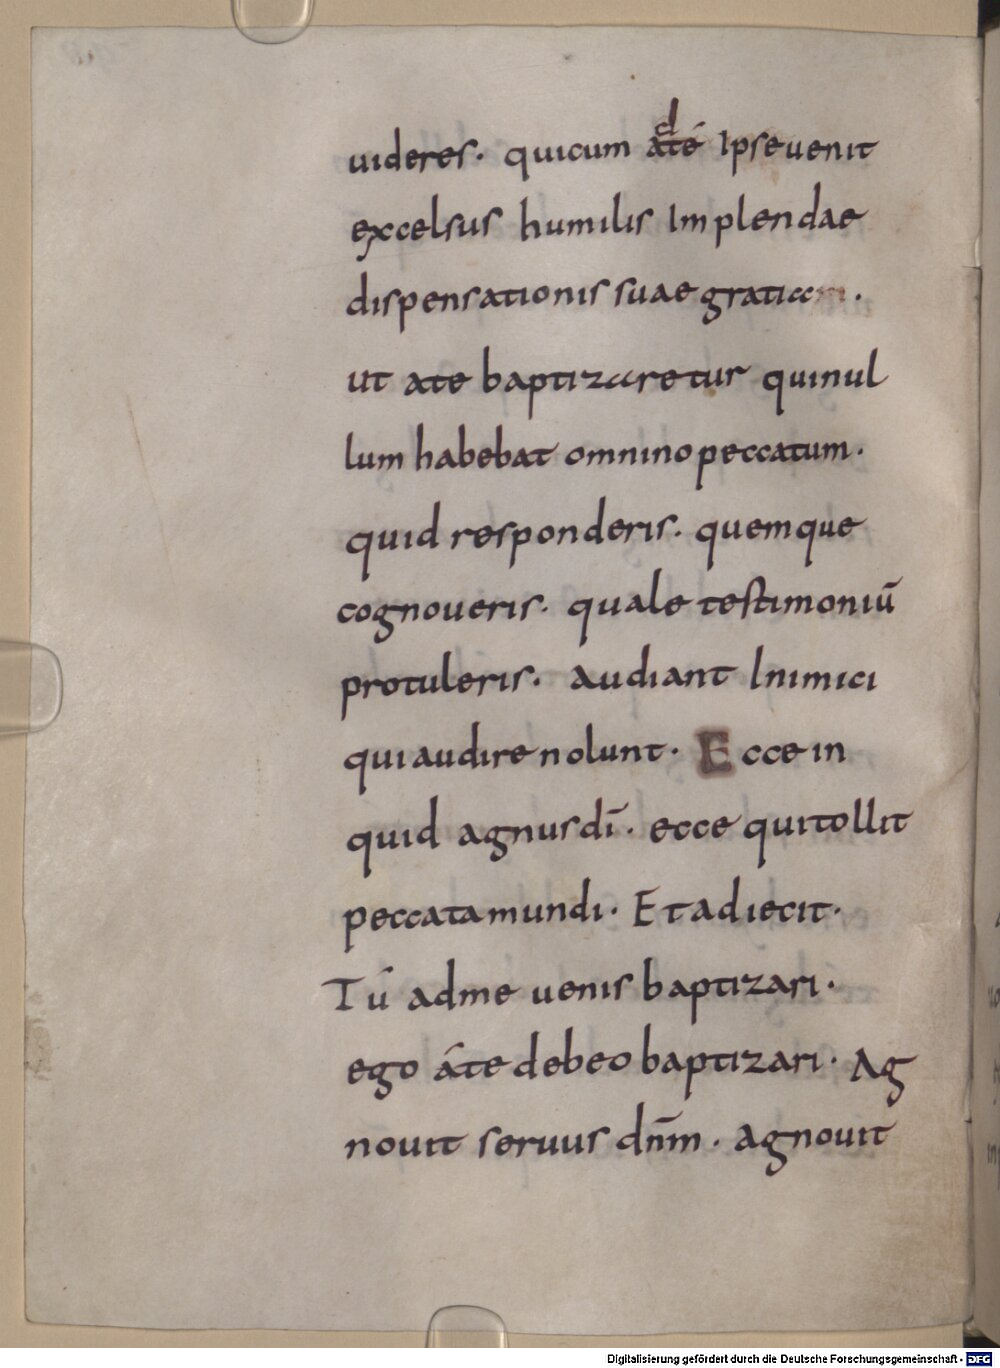 uideres· quicum adté Ipse uenit
excelsus humilis Implendae
dispensationis suae gratiam·
ut ate baptizaretur quinul
lum habebat omnino peccatum·
quid responderis· quemque
cognoueris· quale testimoniū
protuleris· audiant Inimici
qui audire nolunt· Ecce in
quid agnus dī· ecce qui tollit
peccata mundi· Et adiecit·
Tú adme uenis baptizari·
ego áte debeo baptizari· Ag
nouit seruus dn̄m· agnouit
Digitalisierung gefördert durch die Deutsche Forschungsgemeinschaft - DFG